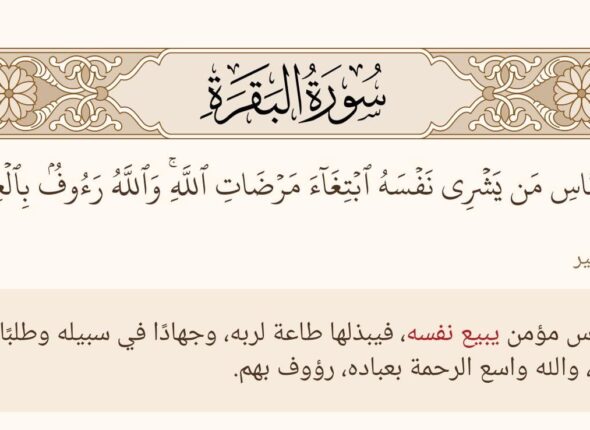 سُورَةُ البَقَرَةِ
مَن يَشۡرِي نَفۡسَهُ ٱبۡتِغَآءَ مَرۡضَاتِ ٱللَّهِۚ وَٱللَّهُ رَءُوفُۢ
مؤمن يبيع نفسه، فيبذلها طاعة لربه، وجهادًا في سبيله وطلبًا
، والله واسع الرحمة بعباده، رؤوف بهم.